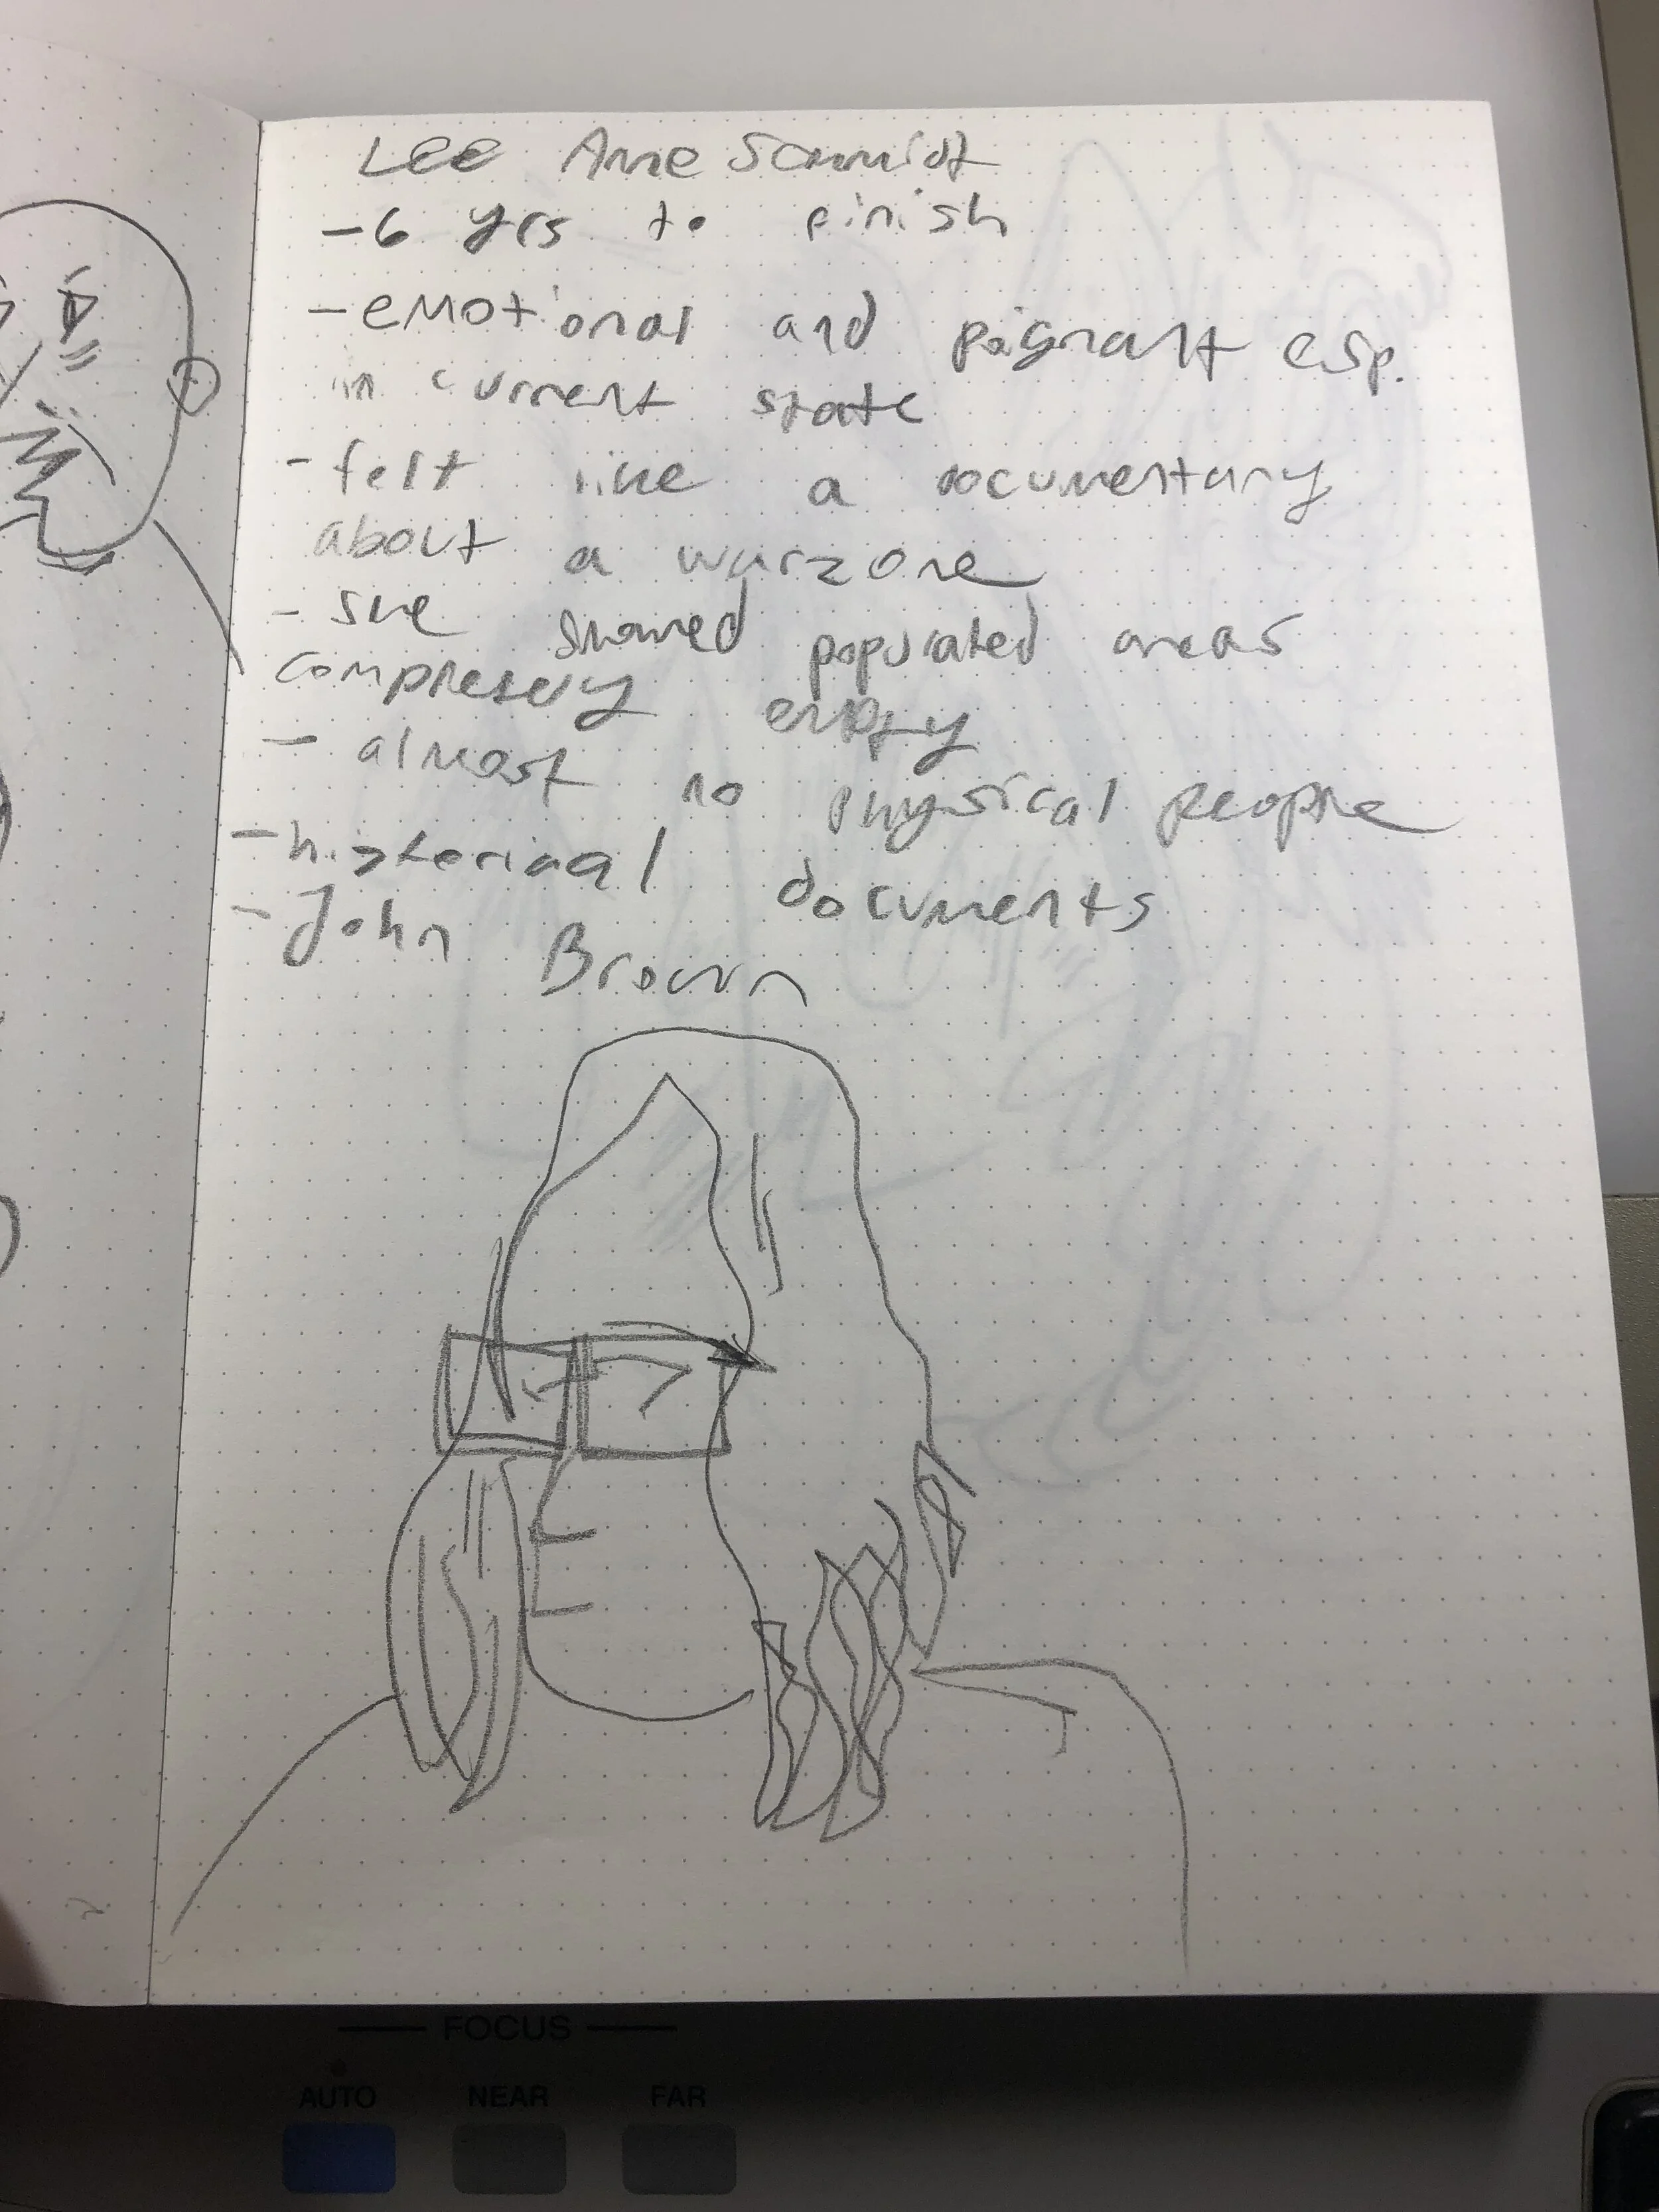 Lee Anne Schmidt
- 6 yrs to finish
- emotional and poignant esp.
in current state
- felt like a documentary
about a warzone
- she showed populated areas
completely empty
- almost no physical people
- historical documents
- John Brown
FOCUS
AUTO NEAR FAR